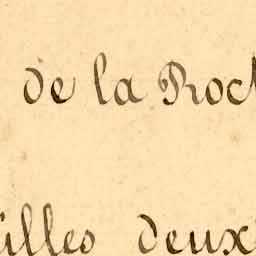 de la Roch
illes deux